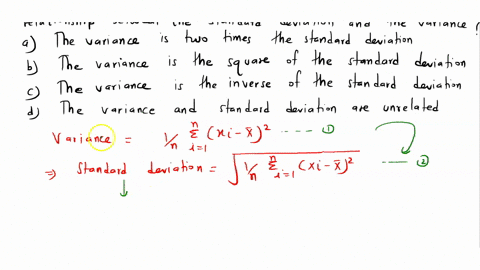 relationship between the standard deviation and the variance
a) The variance is two times the standard deviation
b) The variance is the square of the standard deviation
c) The variance is the inverse of the standard deviation
d) The variance and standard deviation are unrelated
Variance = 1/n Σ_{i=1}^{n} (xi - x̄)² ---- ①
⇒ Standard deviation = √(1/n Σ_{i=1}^{n} (xi - x̄)²) ---- ②